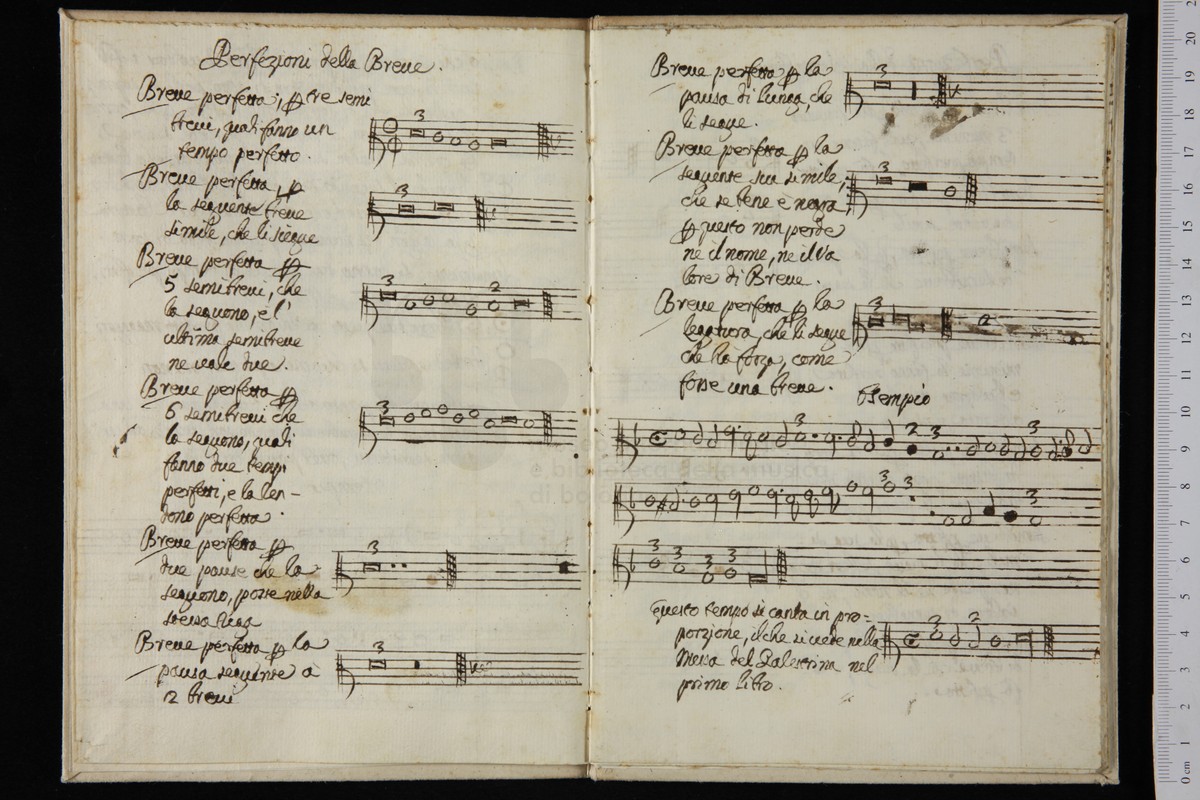 Perfezioni della Breve.
Breve perfetta, p tre semi
brevi, quali fanno un
tempo perfetto.
Breve perfetta, p
la seguente breve
simile, che li siegue
Breve perfetta p
5 semibrevi, che
la seguono, e l'
ultima semibreve
ne vale due.
Breve perfetta p
6 semibrevi che
la seguono, quali
fanno due tempi
perfetti, e la ren-
dono perfetta.
Breve perfetta p
due pause che la
seguono, poste nella
stessa riga
Breve perfetta p la
pausa seguente a
2 brevi
Breve perfetta p la
pausa di lunga, che
li segue.
Breve perfetta p la
seguente sua simile,
che se bene e negra,
p questo non perde
ne il nome, ne il va
lore di Breve.
Breve perfetta p la
legatura, che li segue
che ha forza, come
fosse una breve.
Esempio
Questo tempo si canta in pro-
porzione, il che si vede nella
Messa del Palestrina nel
primo libro.